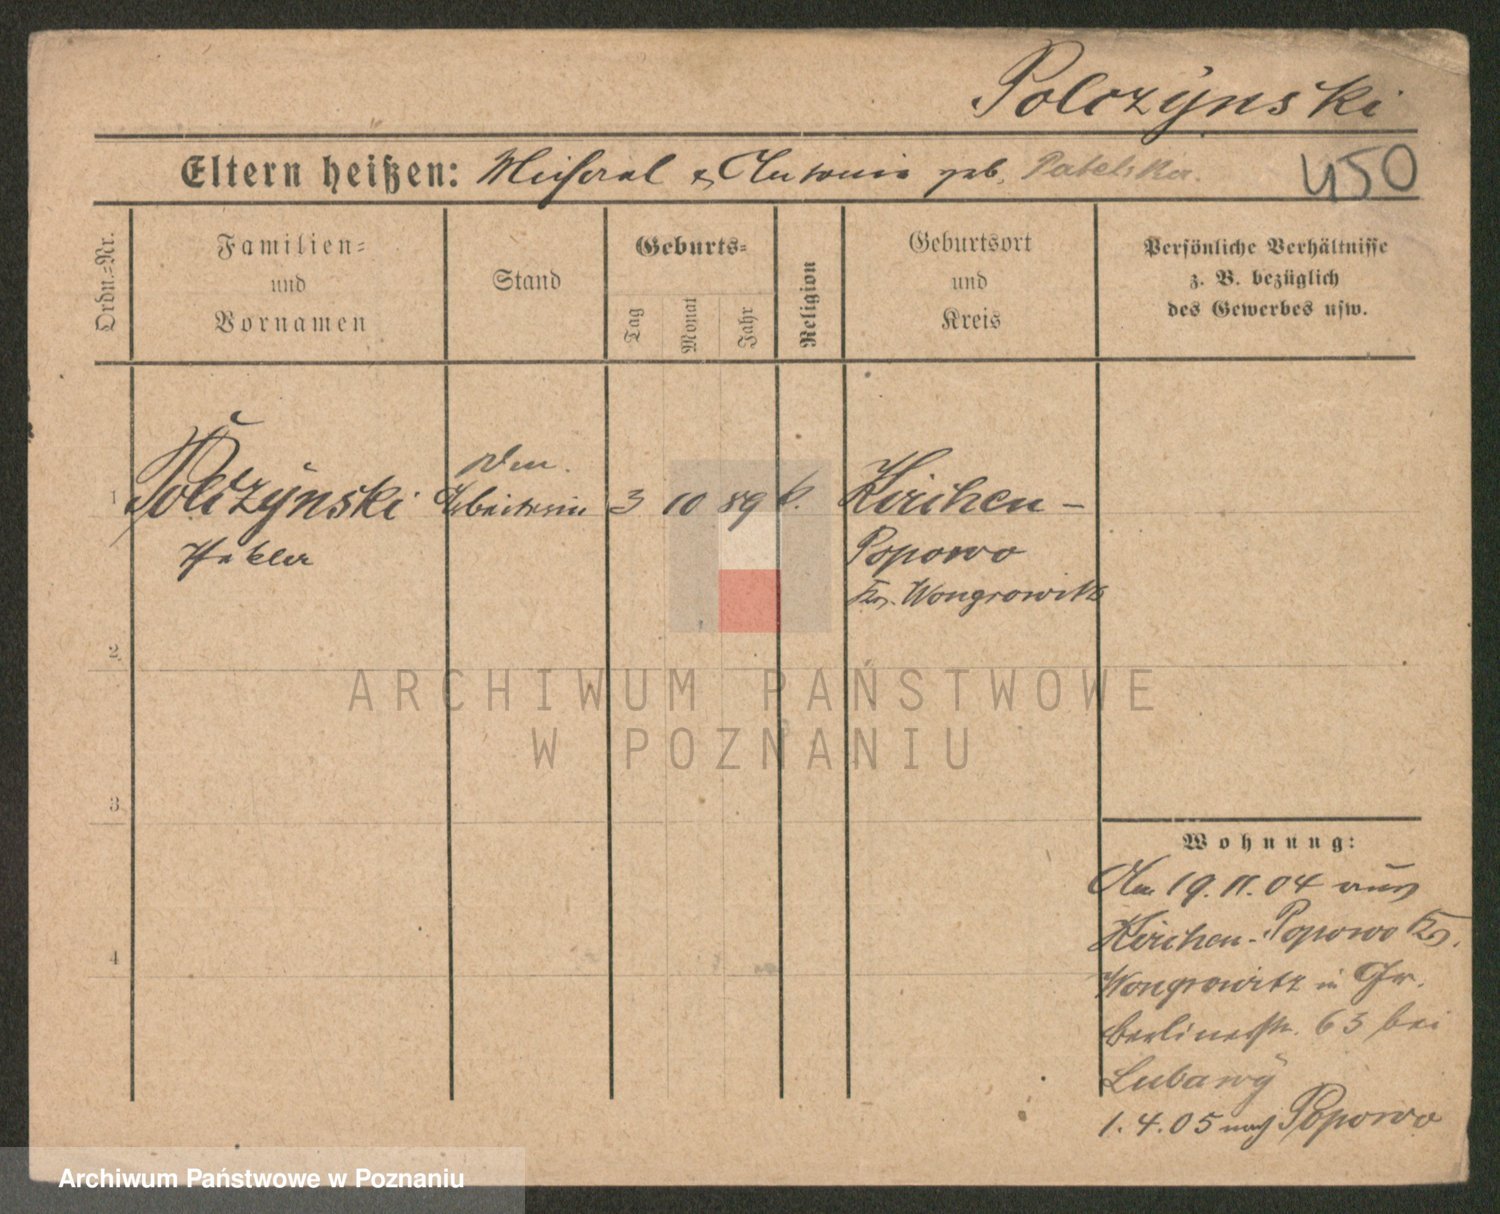 Polczynski
Eltern heißen: Michael & Antonie geb. Patelska.
450
Ordn.-Nr.
Familien-
und
Vornamen
Stand
Geburts-
Tag
Monat
Jahr
Religion
Geburtsort
und
Kreis
Persönliche Verhältnisse
z. B. bezüglich
des Gewerbes usw.
1 Polczynski Arbeiterin 3 10 89 k. Kirchen-
Popowo
Kr. Wongrowitz
2
3
4
Wohnung:
Am 19.11.04 aus
Kirchen-Popowo Kr.
Wongrowitz in Gr.
Berlinerstr. 63 bei
Lubawy
1.4.05 nach Popowo
ARCHIWUM PAŃSTWOWE
W POZNANIU
Archiwum Państwowe w Poznaniu